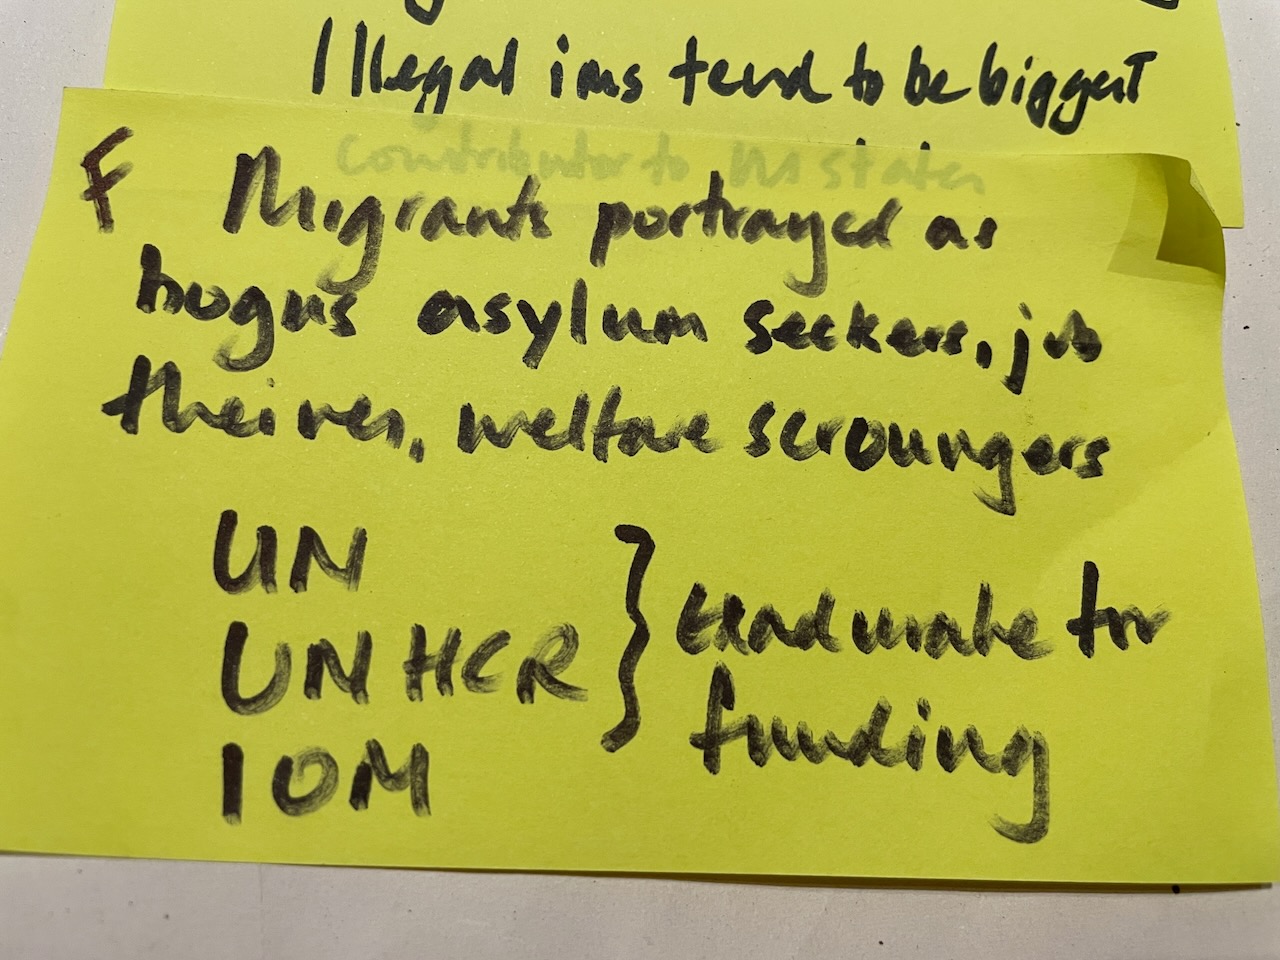 Illegal ims tend to be biggest
contributor to im states
F Migrants portrayed as
bogus asylum seekers, job
theives, welfare scroungers
UN
UNHCR
IOM
} clad make for
funding